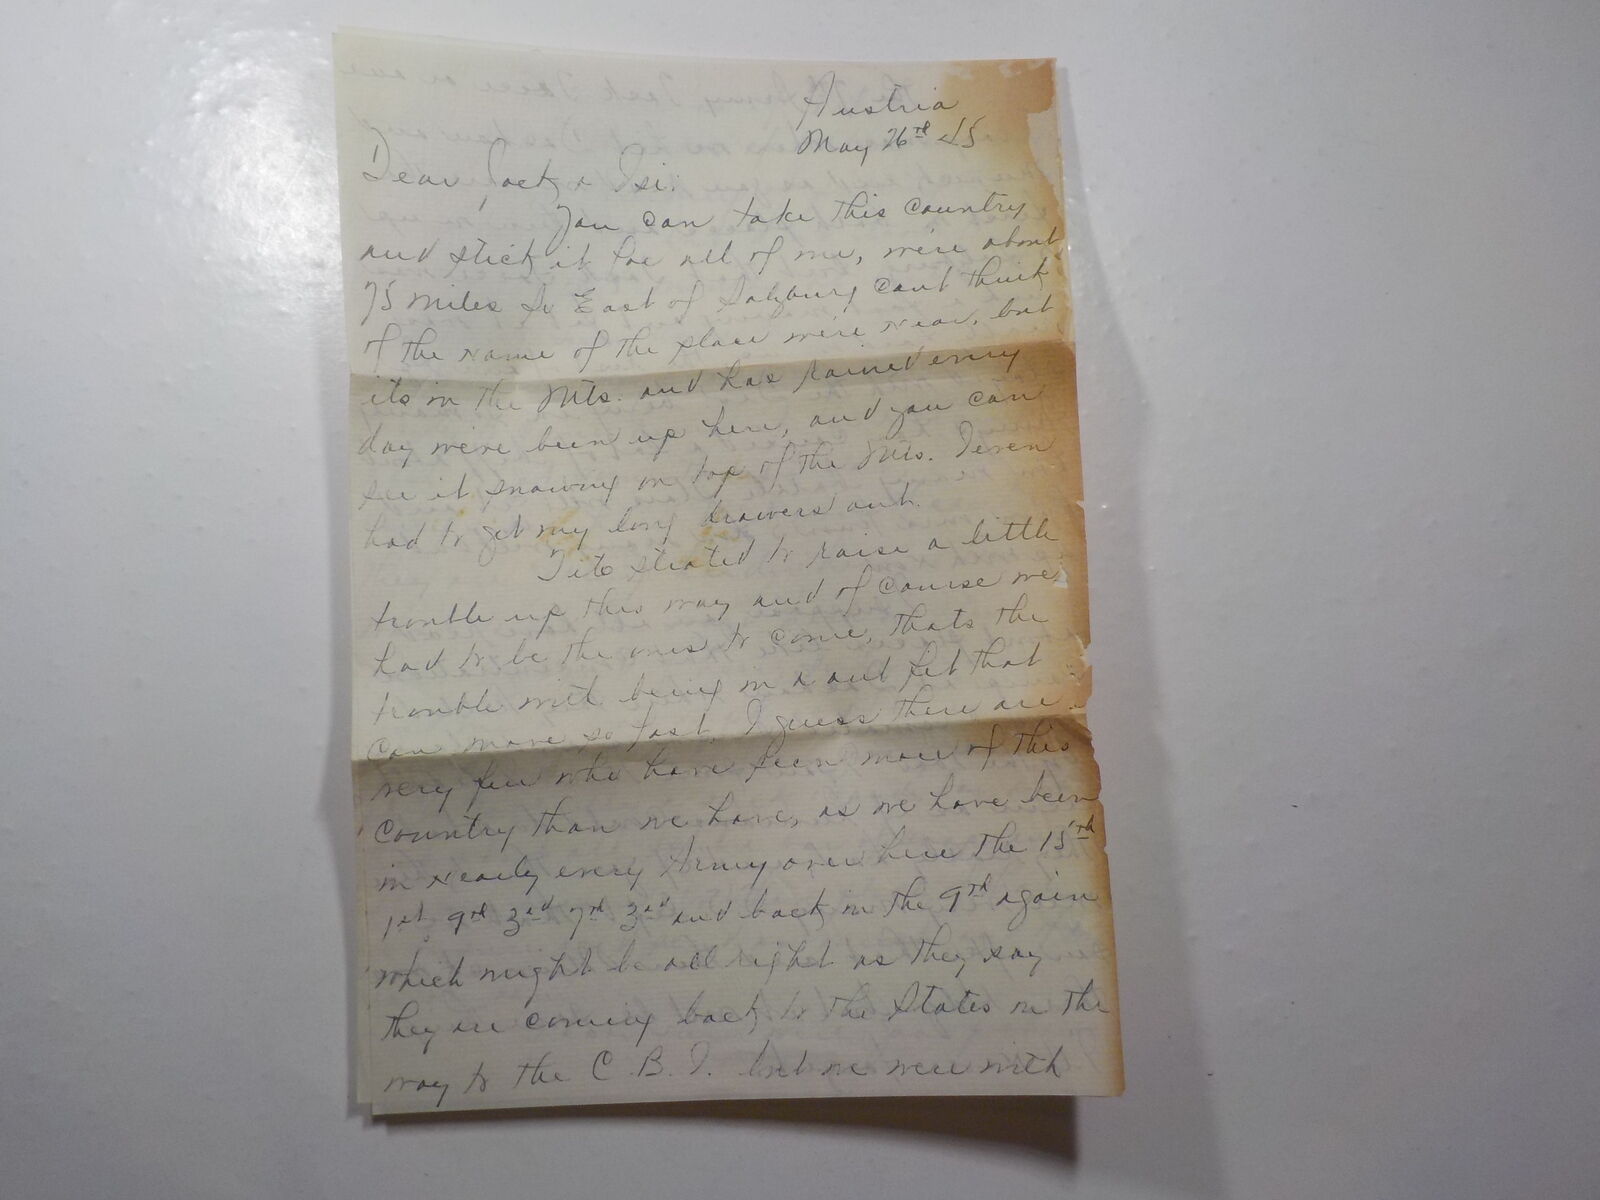 Austria
May 26th 45
Dear Jack & Isi:
You can take this country
and stick it for all of me, were about
75 miles So East of Salzburg cant think
of the name of the place we're near, but
its in the Mts. and has rained every
day we've been up here, and you can
see it snowing on top of the Mts. I even
had to get my long drawers out.
Tito strated to raise a little
trouble up this way and of course we
had to be the ones to come, thats the
trouble with being in a out fit that
can move so fast, I guess there are
very few who have seen more of this
country than we have, as we have been
in nearly every Army over here the 15th
1st 9th 3rd 7th 3rd and back in the 9th again
which might be all right as they say
they are coming back to the States on the
way to the C.B.I. but we were with